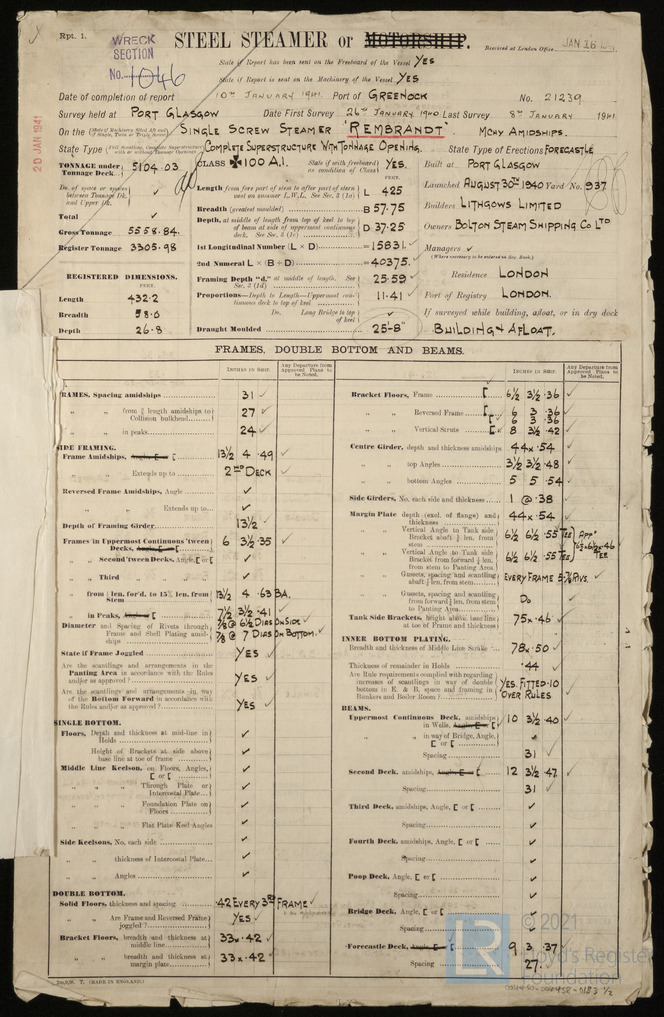 Rpt. 1.
WRECK
SECTION
No. 1046
STEEL STEAMER or MOTORSHIP.
Received at London Office
JAN 16 1941
20 JAN 1941
State if Report has been sent on the Freeboard of the Vessel YES
State if Report is sent on the Machinery of the Vessel YES
Date of completion of report 10TH JANUARY 1941. Port of GREENOCK No. 21239
Survey held at PORT GLASGOW Date First Survey 26TH JANUARY 1940 Last Survey 8TH JANUARY 1941
On the SINGLE SCREW STEAMER "REMBRANDT". MCHY AMIDSHIPS.
State Type COMPLETE SUPERSTRUCTURE WITH TONNAGE OPENING. State Type of Erections FORECASTLE
TONNAGE under Tonnage Deck 5104.03
Do. of space or spaces between Tonnage Dk. and Upper Dk.
Total
Gross Tonnage 5558.84.
Register Tonnage 3305.98
REGISTERED DIMENSIONS.
FEET.
Length 432.2
Breadth 58.0
Depth 26.8
CLASS ✠ 100 A.1. State if (with freeboard) as condition of Class YES.
FEET.
Length from fore part of stem to after part of stern post on summer L.W.L. See Sec. 3 (1a) L 425
Breadth (greatest moulded) B 57.75
Depth, at middle of length from top of keel to top of beam at side of uppermost continuous deck. See Sec. 3 (1c) D 37.25
1st Longitudinal Number (L × D) = 15831.
2nd Numeral L × (B + D) = 40375.
Framing Depth "d," at middle of length. See Sec. 3 (1d) 25.59
Proportions—Depth to Length—Uppermost continuous deck to top of keel 11.41
Do. Long Bridge to top of keel
Draught Moulded 25-8"
Built at PORT GLASGOW
Launched AUGUST 30TH 1940 Yard No. 937
Builders LITHGOWS LIMITED
Owners BOLTON STEAM SHIPPING CO LTD
Managers
(Where necessary to be entered in Reg. Book.)
Residence LONDON
Port of Registry LONDON.
If surveyed while building, afloat, or in dry dock
BUILDING & AFLOAT.
FRAMES, DOUBLE BOTTOM AND BEAMS.
INCHES IN SHIP. Any Departure from Approved Plans to be Noted.
FRAMES, Spacing amidships 31
" " from 3/5 length amidships to Collision bulkhead 27
" " in peaks 24
SIDE FRAMING.
Frame Amidships, Angle, [ or [ 13½ 4 .49
" " Extends up to 2ND DECK
Reversed Frame Amidships, Angle
" " " Extends up to
Depth of Framing Girder 13½
Frames in Uppermost Continuous 'tween Decks, Angle, [ or [ 6 3½ .35
" Second 'tween Decks, Angle, [ or [
" Third "
" from ½ len. for'd. to 15% len. from Stem 13½ 4 .63 BA.
" in Peaks, Angle or [ 7½ 3½ .41
Diameter and Spacing of Rivets through Frame and Shell Plating amidships 7/8 @ 6½ DIAS ON SIDE
7/8 @ 7 DIAS ON BOTTOM.
State if Frame Joggled YES
Are the scantlings and arrangements in the Panting Area in accordance with the Rules and/or as approved? YES
Are the scantlings and arrangements in way of the Bottom Forward in accordance with the Rules and/or as approved? YES
SINGLE BOTTOM.
Floors, Depth and thickness at mid-line in Holds
Height of Brackets at side above base line at toe of frame
Middle Line Keelson, on Floors, Angles, [ or [
" " Through Plate or Intercostal Plate
" " Foundation Plate on Floors
" " Flat Plate Keel Angles
Side Keelsons, No. each side
" " thickness of Intercostal Plate
" " Angles
DOUBLE BOTTOM.
Solid Floors, thickness and spacing .42 EVERY 3RD FRAME
" " Are Frame and Reversed Frame joggled? YES
Bracket Floors, breadth and thickness at middle line 33 × .42
" " breadth and thickness at margin plate 33 × .42
INCHES IN SHIP. Any Departure from Approved Plans to be Noted.
Bracket Floors, Frame [ 6½ 3½ .36
" " Reversed Frame [ 6 3 .36
6 3 .36
" " Vertical Struts [ 8 3½ .42
Centre Girder, depth and thickness amidships 44 × .54
" " top Angles 3½ 3½ .48
" " bottom Angles 5 5 .54
Side Girders, No. each side and thickness 1 @ .38
Margin Plate depth (excl. of flange) and thickness 44 × .54
" " Vertical Angle to Tank side Bracket abaft ¼ len. from stem 6½ 6½ .55 TEE
" " Vertical Angle to Tank side Bracket from forward ¼ len. from stem to Panting Area 6½ 6½ .55 TEE
APPD 6½×6½×.46 TEE
" " Gussets, spacing and scantling abaft ¼ len. from stem EVERY FRAME 5-⅞ RIVS.
" " Gussets, spacing and scantling from forward ¼ len. from stem to Panting Area DO
Tank Side Brackets, height above base line at toe of Frame and thickness 75 × .46
INNER BOTTOM PLATING.
Breadth and thickness of Middle Line Strake 78 × .50
Thickness of remainder in Holds .44
Are Rule requirements complied with regarding increases of scantlings in way of double bottom in E. & B. space and framing in Bunkers and Boiler Room? YES. FITTED .10 OVER RULES
BEAMS.
Uppermost Continuous Deck, amidships in Wells, Angle, [ or [ 10 3½ .40
" " in way of Bridge, Angle, [ or [
Spacing 31
Second Deck, amidships, Angle, [ or [ 12 3½ .47
Spacing 31
Third Deck, amidships, Angle, [ or [
Spacing
Fourth Deck, amidships, Angle, [ or [
Spacing
Poop Deck, Angle, [ or [
Spacing
Bridge Deck, Angle, [ or [
Spacing
Forecastle Deck, Angle, [ or [ 9 3 .37
Spacing 27.
(MADE IN ENGLAND.)
LR
© 2021
Lloyd's Register
Foundation